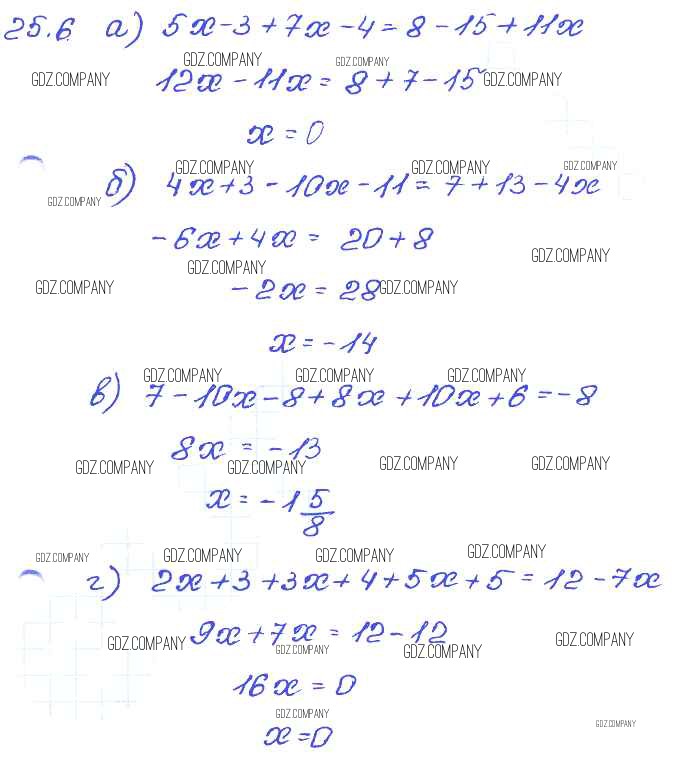 25.6 а) 5x-3+7x-4=8-15+11x
GDZ.COMPANY GDZ.COMPANY
GDZ.COMPANY 12x-11x=8+7-15 GDZ.COMPANY
x=0
GDZ.COMPANY GDZ.COMPANY GDZ.COMPANY
GDZ.COMPANY б) 4x+3-10x-11=7+13-4x
-6x+4x=20+8
GDZ.COMPANY GDZ.COMPANY
GDZ.COMPANY -2x=28 GDZ.COMPANY
x=-14
GDZ.COMPANY GDZ.COMPANY GDZ.COMPANY
в) 7-10x-8+8x+10x+6=-8
8x=-13
GDZ.COMPANY GDZ.COMPANY GDZ.COMPANY GDZ.COMPANY
x=-1 5/8
GDZ.COMPANY GDZ.COMPANY GDZ.COMPANY GDZ.COMPANY
г) 2x+3+3x+4+5x+5=12-7x
9x+7x=12-12
GDZ.COMPANY GDZ.COMPANY GDZ.COMPANY GDZ.COMPANY
16x=0
GDZ.COMPANY GDZ.COMPANY
x=0